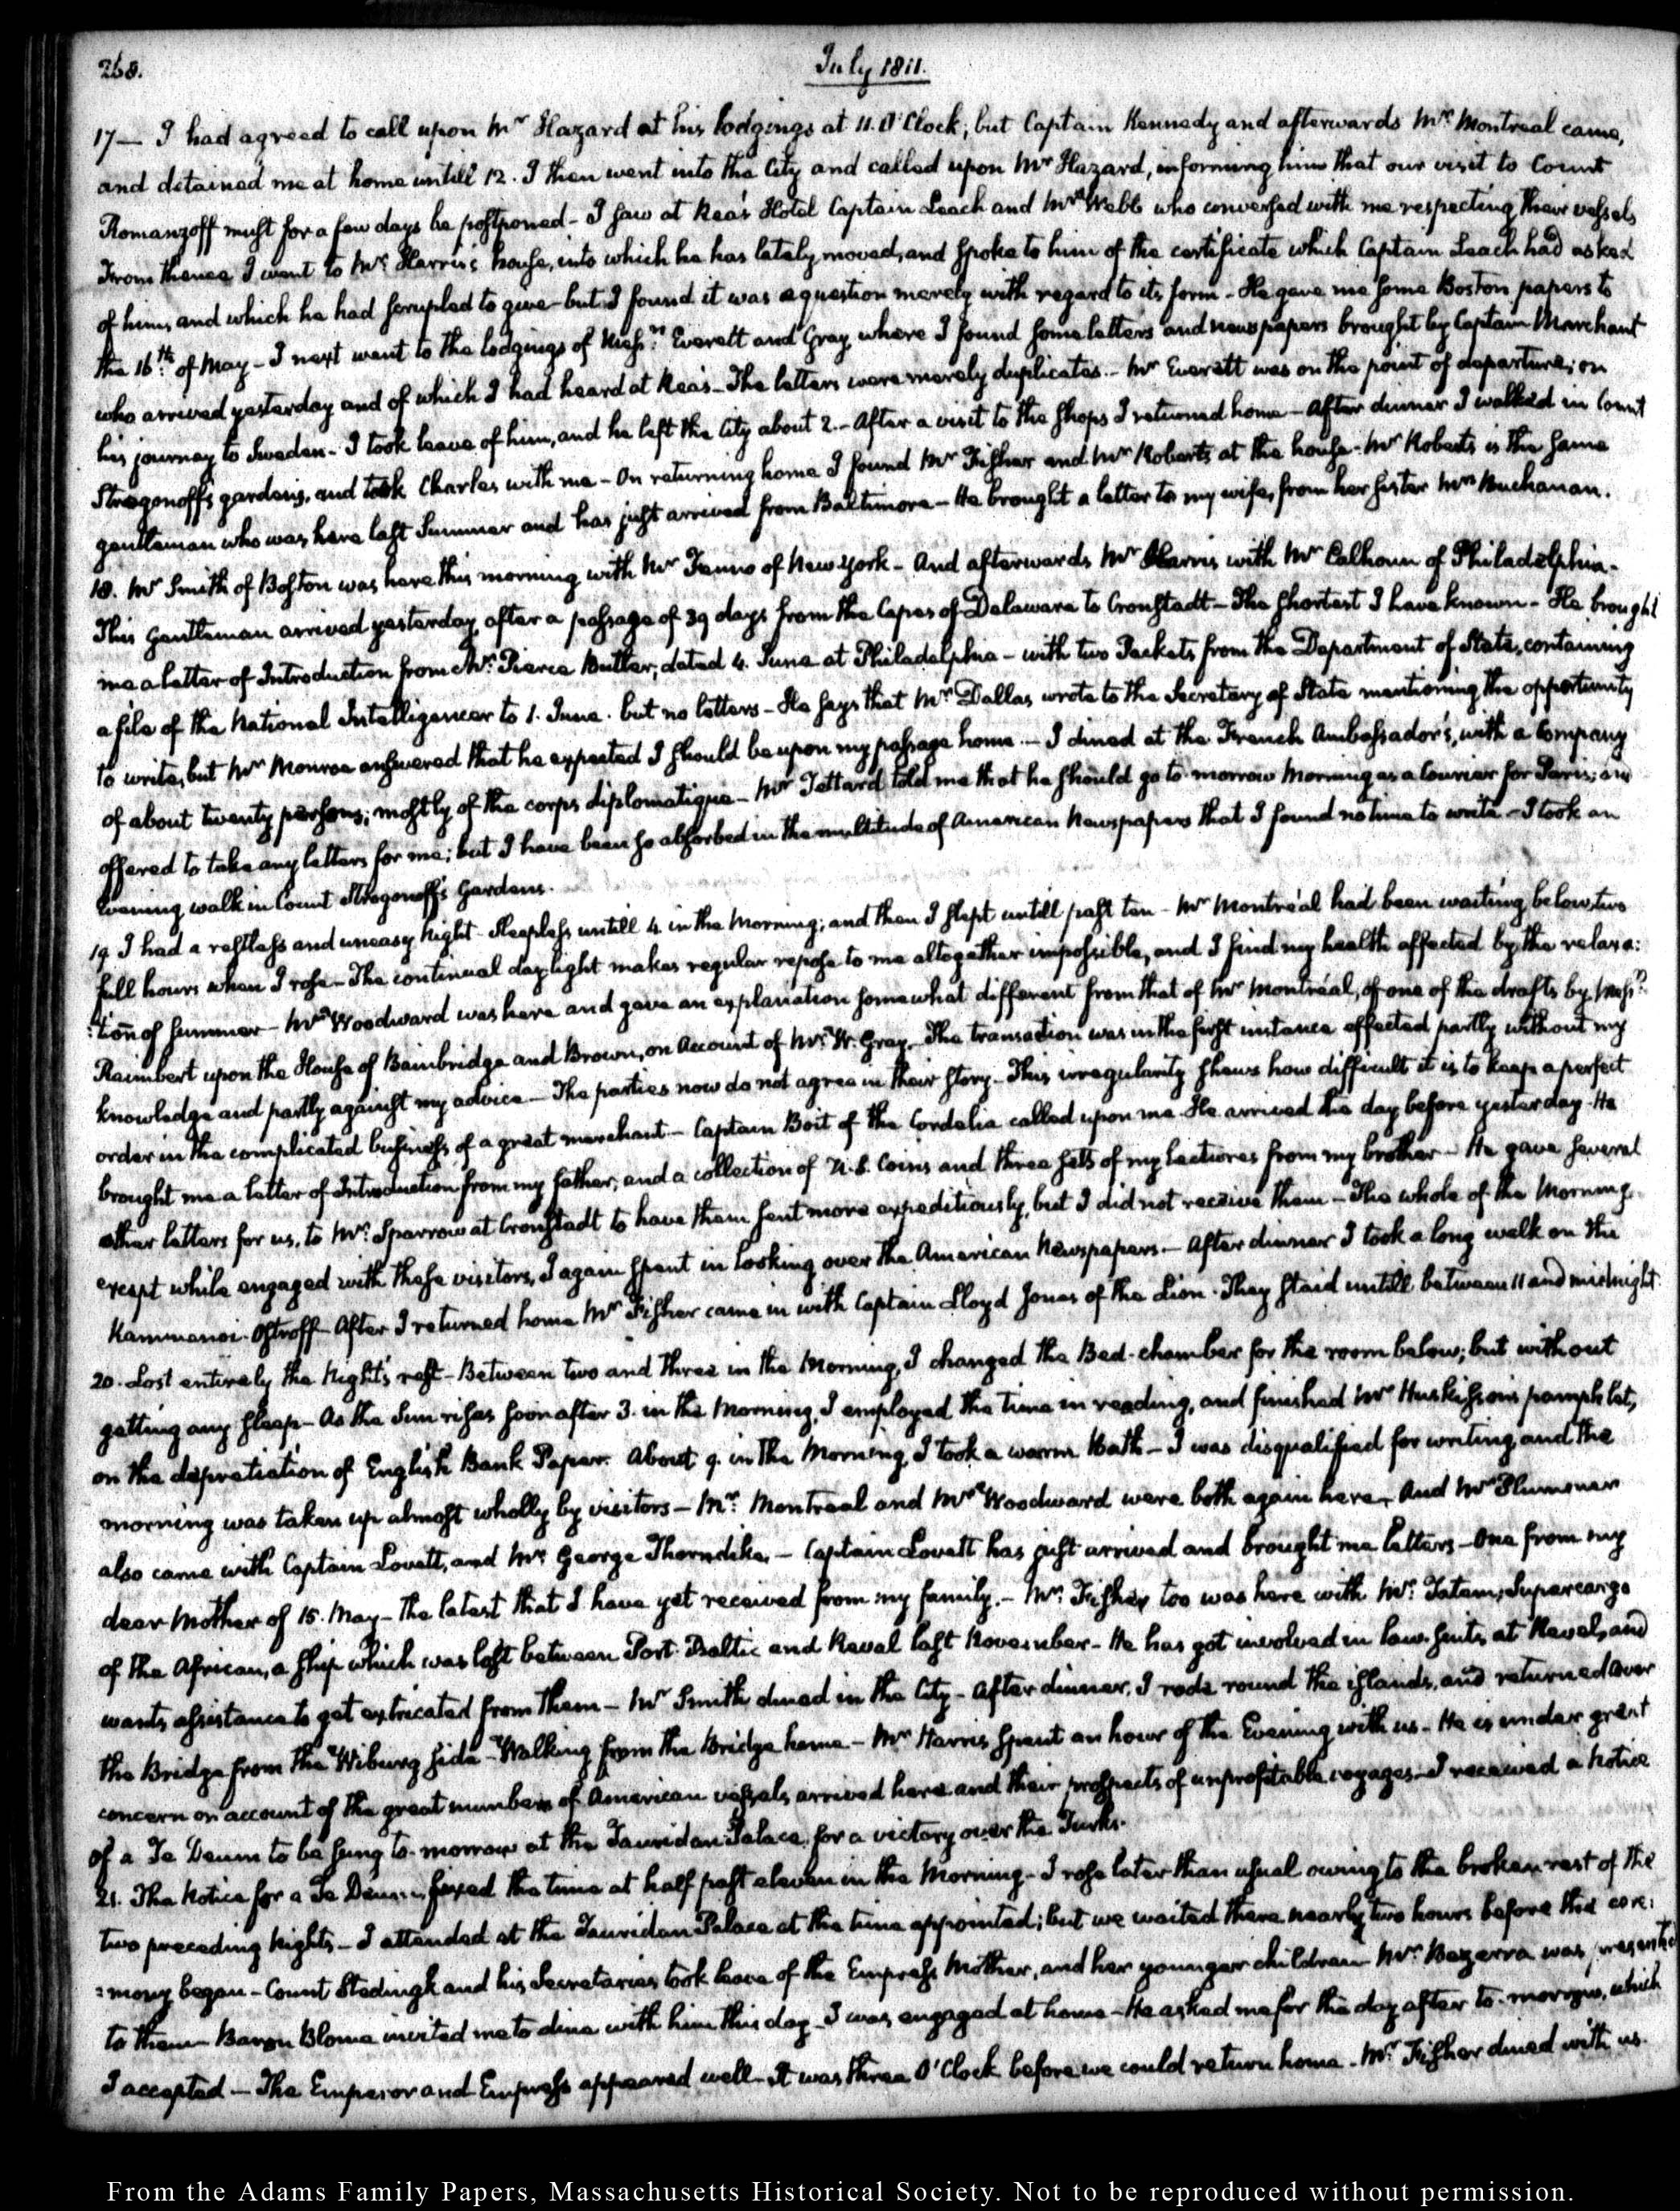 268.
July 1811.
17— I had agreed to call upon Mr Hazard at his lodgings at 11. O'Clock; but Captain Kennedy and afterwards Mr. Montreal came,
and detained me at home untill 12. I then went into the City and called upon Mr Hazard, informing him that our visit to Count
Romanzoff must for a few days be postponed - I saw at Rea's Hotel Captain Leach and Mr Webb who conversed with me respecting their vessels
From thence I went to Mr. Harris's house, into which he has lately moved, and spoke to him of the certificate which Captain Leach had asked
of him, and which he had scrupled to give - but I found it was a question merely with regard to its form - He gave me some Boston papers to
the 16th. of May - I next went to the lodgings of Messrs. Everett and Gray where I found some letters and newspapers brought by Captain Marchant
who arrived yesterday and of which I had heard at Rea's - The letters were merely duplicates. - Mr Everett was on the point of departure; on
his journey to Sweden - I took leave of him, and he left the City about 2. - After a visit to the shops I returned home - After dinner I walked in Count
Strogonoff's gardens, and took Charles with me - On returning home I found Mr Fisher and Mr Roberts at the house - Mr Roberts is the same
gentleman who was here last Summer and has just arrived from Baltimore - He brought a letter to my wife, from her sister Mrs Buchanan.
18. Mr Smith of Boston was here this morning with Mr Fanno of New York - And afterwards Mr Harris with Mr Calhoun of Philadelphia -
This Gentleman arrived yesterday, after a passage of 39 days from the Capes of Delaware to Cronstadt - The shortest I have known - He brought
me a letter of Introduction from Mr. Pierce Butler, dated 4. June at Philadelphia - with two Packets from the Department of State, containing
a file of the National Intelligencer to 1. June. but no letters - He says that Mr. Dallas wrote to the Secretary of State mentioning the opportunity
to write, but Mr Monroe answered that he expected I should be upon my passage home. - I dined at the French Ambassador's, with a Company
of about twenty persons; mostly of the corps diplomatique - Mr Tettard told me that he should go to-morrow Morning as a Courier for Paris; and
offered to take any letters for me; but I have been so absorbed in the multitude of American Newspapers that I found no time to write - I took an
Evening walk in Count Strogonoff's Gardens.
19 I had a restless and uneasy Night - Sleepless untill 4. in the Morning; and then I slept untill past ten - Mr Montréal had been waiting below, two
full hours when I rose - The continual day light makes regular repose to me altogether impossible, and I find my health affected by the relaxa:
:tion of Summer - Mr Woodward was here and gave an explanation somewhat different from that of Mr Montréal, of one of the drafts by Messrs.
Raimbert upon the House of Bainbridge and Brown, on Account of Mr. W. Gray. The transaction was in the first instance effected partly without my
knowledge and partly against my advice - The parties now do not agree in their story - This irregularity shews how difficult it is to keep a perfect
order in the complicated business of a great merchant - Captain Boit of the Cordelia called upon me. He arrived the day before yesterday - He
brought me a letter of Introduction from my father, and a collection of U.S. Coins and three setts of my lectures from my brother - He gave several
other letters for us, to Mr. Sparrow at Cronstadt to have them sent more expeditiously, but I did not receive them - The whole of the Morning,
except while engaged with these visitors, I again spent in looking over the American Newspapers. - After dinner I took a long walk on the
Kammenoi-Ostroff - After I returned home Mr Fisher came in with Captain Lloyd Jones of the Lion. They staid untill between 11 and midnight.
20. Lost entirely the Night's rest - Between two and three in the Morning, I changed the Bed-chamber for the room below; but without
getting any sleep - As the Sun rises soon after 3. in the Morning, I employed the time in reading, and finished Mr Huskisson's pamphlet,
on the depretiation of English Bank Paper. About 9. in the Morning, I took a warm Bath - I was disqualified for writing, and the
morning was taken up almost wholly by visitors - Mr. Montreal and Mr Woodward were both again here, And Mr Plummer
also came with Captain Lovett, and Mr George Thorndike, - Captain Lovett has just arrived and brought me letters - One from my
dear Mother of 15. May - The latest that I have yet received from my family. - Mr. Fisher too was here with Mr. Tatem, Supercargo
of the African, a ship which was lost between Port-Baltic and Reval last November - He has got involved in law-suits, at Reval, and
wants assistance to get extricated from them - Mr Smith dined in the City - After dinner, I rode round the islands, and returned over
the Bridge from the Wiburg side - Walking from the Bridge home - Mr Harris spent an hour of the Evening with us - He is under great
concern on account of the great numbers of American vessels arrived here and their prospects of unprofitable voyages - I received a Notice
of a Te Deum to be sung to-morrow at the Tauridan Palace, for a victory over the Turks.
21. The Notice for a Te Deum fixed the time at half past eleven in the Morning - I rose later than usual owing to the broken rest of the
two preceding Nights - I attended at the Tauridan Palace at the time appointed; but we waited there nearly two hours before the cere:
:mony began - Count Stedingk and his Secretaries took leave of the Empress Mother, and her younger children Mr. Bezerra was presented
to them - Baron Blome invited me to dine with him this day - I was engaged at home - He asked me for the day after to-morrow, which
I accepted - The Emperor and Empress appeared well - It was three O'Clock before we could return home - Mr. Fisher dined with us.
From the Adams Family Papers, Massachusetts Historical Society. Not to be reproduced without permission.